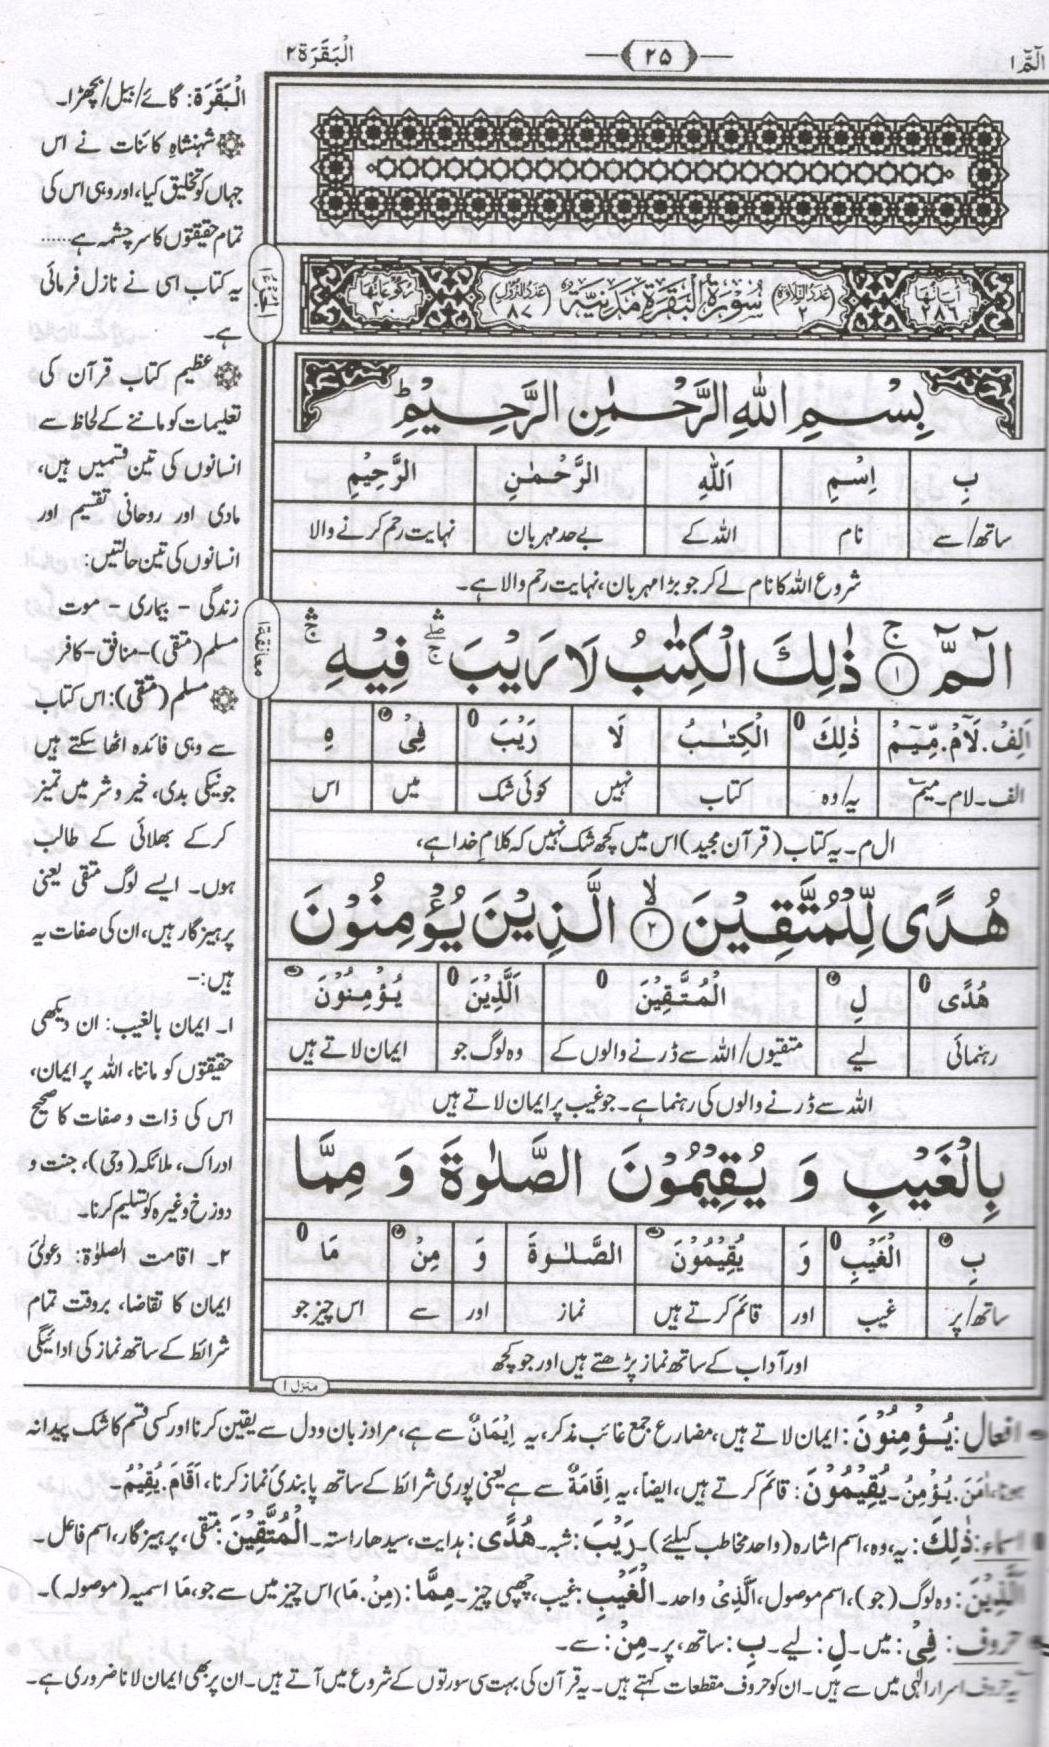 الٓمّٓ ۱
۲۵
الْبَقَرَة ۲
اٰيَاتُهَا ۲۸۶
(عَدَدُ التِّلَاوَة ۲) سُوْرَةُ الْبَقَرَةِ مَدَنِيَّةٌ (عَدَدُ النُّزُوْل ۸۷)
رُكُوْعَاتُهَا ۴۰
بِسْمِ اللّٰهِ الرَّحْمٰنِ الرَّحِيْمِ ؕ
بِ اِسْمِ اَللّٰهِ الرَّحْمٰنِ الرَّحِيْمِ
ساتھ/سے نام اللہ کے بے حد مہربان نہایت رحم کرنے والا
شروع اللہ کا نام لے کر جو بڑا مہربان، نہایت رحم والا ہے۔
الٓمّٓ ۚ﴿۱﴾ ذٰلِكَ الْكِتٰبُ لَا رَيْبَ ۛۖۚ فِيْهِ ۛۚ
اَلِفْ.لَآمْ.مِّيْمْ ذٰلِكَ الْكِتٰبُ لَا رَيْبَ فِىْ هِ
الف۔لام۔میم یہ/وہ کتاب نہیں کوئی شک میں اس
ال م۔ یہ کتاب (قرآن مجید) اس میں کچھ شک نہیں کہ کلامِ خدا ہے،
هُدًى لِّلْمُتَّقِيْنَ ۙ﴿۲﴾ الَّذِيْنَ يُؤْمِنُوْنَ
هُدًى لِ الْمُتَّقِيْنَ اَلَّذِيْنَ يُؤْمِنُوْنَ
رہنمائی لیے متقیوں/اللہ سے ڈرنے والوں کے وہ لوگ جو ایمان لاتے ہیں
اللہ سے ڈرنے والوں کی رہنما ہے۔ جو غیب پر ایمان لاتے ہیں
بِالْغَيْبِ وَ يُقِيْمُوْنَ الصَّلٰوةَ وَ مِمَّا
بِ الْغَيْبِ وَ يُقِيْمُوْنَ الصَّلٰوةَ وَ مِنْ مَا
ساتھ/پر غیب اور قائم کرتے ہیں نماز اور سے اس چیز جو
اور آداب کے ساتھ نماز پڑھتے ہیں اور جو کچھ
منزل ۱
معانقة ۱
الْبَقَرَة: گائے/بیل/بچھڑا۔
شہنشاہِ کائنات نے اس
جہاں کو تخلیق کیا، اور وہی اس کی
تمام حقیقتوں کا سرچشمہ ہے......
یہ کتاب اسی نے نازل فرمائی
ہے۔
عظیم کتاب قرآن کی
تعلیمات کو ماننے کے لحاظ سے
انسانوں کی تین قسمیں ہیں،
مادی اور روحانی تقسیم اور
انسانوں کی تین حالتیں:
زندگی - بیماری - موت
مسلم (متقی)-منافق-کافر
مسلم (متقی): اس کتاب
سے وہی فائدہ اٹھا سکتے ہیں
جو نیکی بدی، خیر و شر میں تمیز
کرکے بھلائی کے طالب
ہوں۔ ایسے لوگ متقی یعنی
پرہیزگار ہیں، ان کی صفات یہ
ہیں:-
۱۔ ایمان بالغیب: ان دیکھی
حقیقتوں کو ماننا، اللہ پر ایمان،
اس کی ذات و صفات کا صحیح
ادراک، ملائکہ (وحی)، جنت و
دوزخ وغیرہ کو تسلیم کرنا۔
۲۔ اقامت الصلوٰة: دعوئ
ایمان کا تقاضا، بروقت تمام
شرائط کے ساتھ نماز کی ادائیگی
افعال: يُؤْمِنُوْنَ: ایمان لاتے ہیں، مضارع جمع غائب مذکر، یہ اِیْمَانٌ سے ہے، مراد زبان و دل سے یقین کرنا اور کسی قسم کا شک پیدا نہ
اٰمَنَ. يُؤْمِنُ۔ يُقِيْمُوْنَ: قائم کرتے ہیں، ایضاً، یہ اِقَامَةٌ سے ہے یعنی پوری شرائط کے ساتھ پابندئ نماز کرنا، اَقَامَ. يُقِيْمُ۔
اسماء: ذٰلِكَ: یہ، وہ، اسم اشارہ (واحد مخاطب کیلئے)۔ رَيْبَ: شبہ۔ هُدًى: ہدایت، سیدھا راستہ۔ الْمُتَّقِيْنَ: متقی، پرہیزگار، اسم فاعل۔
اَلَّذِيْنَ: وہ لوگ (جو)، اسم موصول، اَلَّذِىْ واحد۔ الْغَيْبِ: غیب، چھپی چیز۔ مِمَّا: (مِنْ. مَا) اس چیز میں سے جو، مَا اسمیہ (موصولہ)۔
حروف: فِىْ: میں۔ لِ: لیے۔ بِ: ساتھ، پر۔ مِنْ: سے۔
یہ حروف اسرار الٰہی میں سے ہیں۔ ان کو حروف مقطعات کہتے ہیں۔ یہ قرآن کی بہت سی سورتوں کے شروع میں آتے ہیں۔ ان پر بھی ایمان لانا ضروری ہے۔